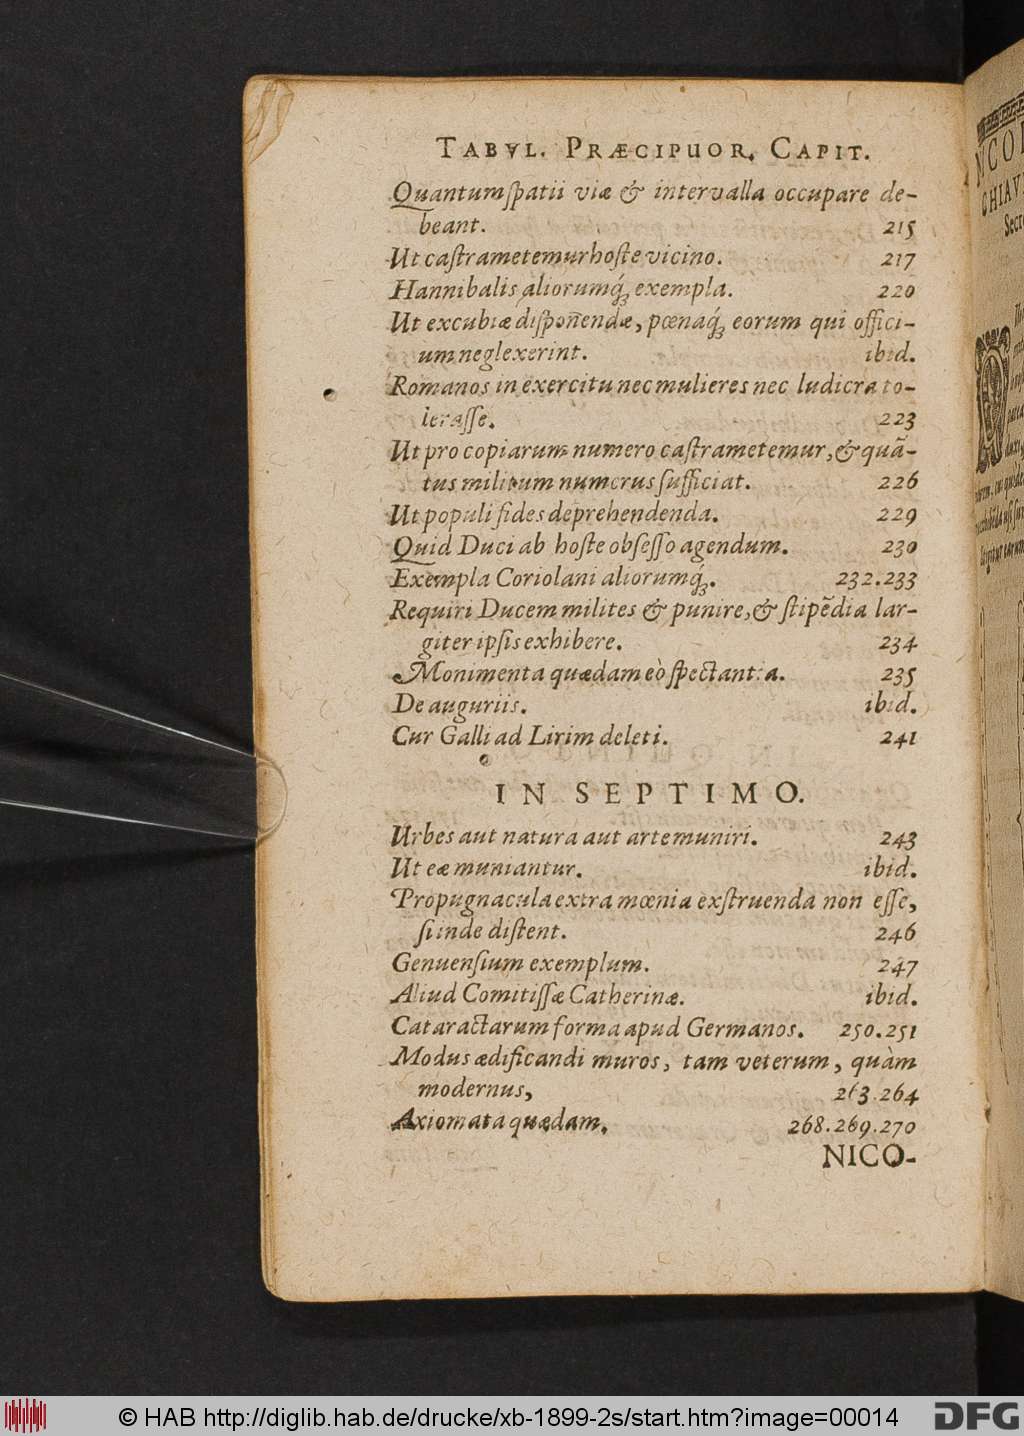 TABVL. PRÆCIPUOR. CAPIT.
Quantum ſpatii viæ & intervalla occupare de-
beant. 215
Ut caſtrametemur hoſte vicino. 217
Hannibalis aliorumq́; exempla. 220
Ut excubiæ diſponendæ, pœnaq́; eorum qui offici-
um neglexerint. ibid.
Romanos in exercitu nec mulieres nec ludicra to-
leraſſe. 223
Ut pro copiarum numero caſtrametemur, & quã-
tus militum numerus ſufficiat. 226
Ut populi fides deprehendenda. 229
Quid Duci ab hoſte obſeſſo agendum. 230
Exempla Coriolani aliorumq́;. 232.233
Requiri Ducem milites & punire, & ſtipẽdia lar-
giter ipſis exhibere. 234
Monimenta quædam eò ſpectantia. 235
De auguriis. ibid.
Cur Galli ad Lirim deleti. 241
IN SEPTIMO.
Urbes aut natura aut arte muniri. 243
Ut eæ muniantur. ibid.
Propugnacula extra mœnia exſtruenda non eſſe,
ſi inde diſtent. 246
Genuenſium exemplum. 247
Aliud Comitiſſæ Catherinæ. ibid.
Cataractarum forma apud Germanos. 250.251
Modus ædificandi muros, tam veterum, quàm
modernus, 263.264
Axiomata quædam. 268.269.270
NICO-
© HAB http://diglib.hab.de/drucke/xb-1899-2s/start.htm?image=00014
DFG